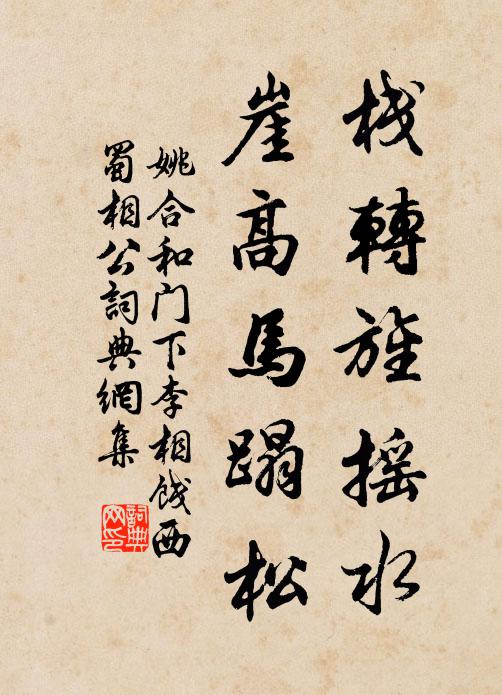 栈轉旌摇水
崖高馬蹋松
姚合和门下李相饯西
蜀相公詞典網集
詞典
网印